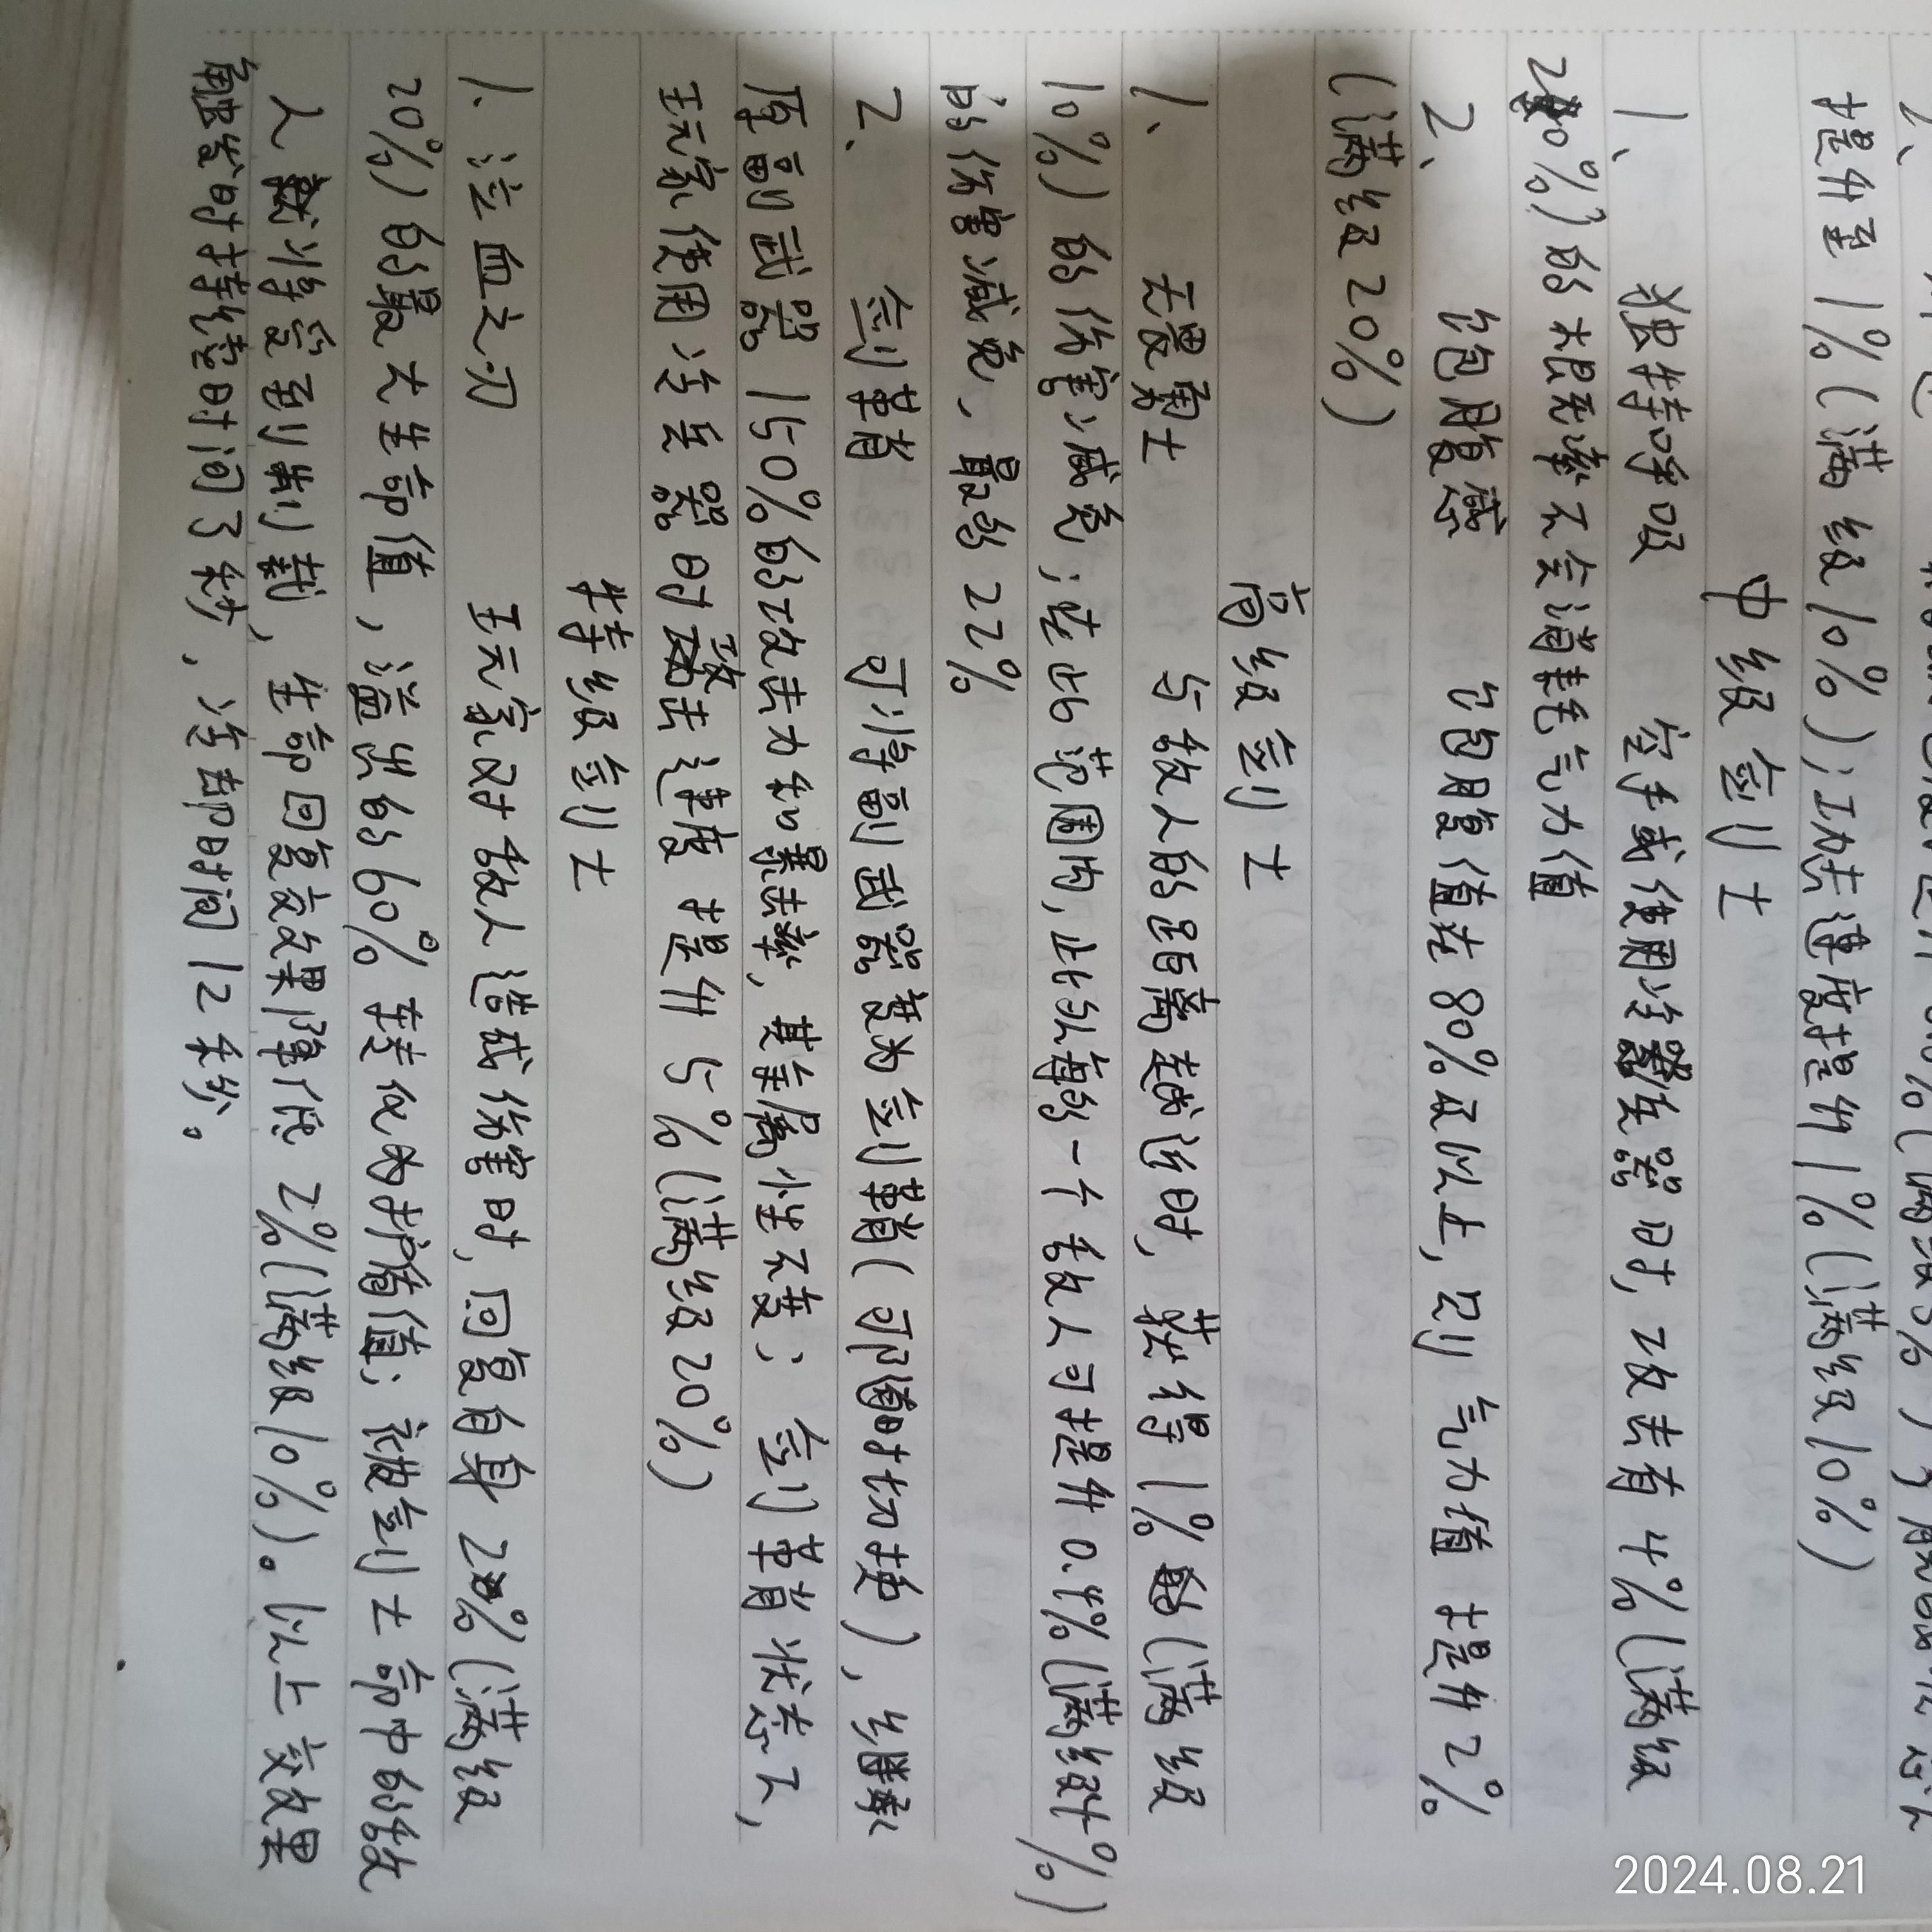 提升至1%(满级10%);攻击速度提升1%(满级10%)
中级剑士
1、独特呼吸 空手或使用冷兵器时,攻击有4%(满级
20%)的概率不会消耗气力值
2、饱腹感 饱腹值在80%及以上,则气力值提升2%
(满级20%)
高级剑士
1、无畏勇士 与敌人的距离越近时,获得1%(满级
10%)的伤害减免;在此范围内,此外每多一个敌人可提升0.4%(满级4%)
的伤害减免、最多22%
2、剑鞘 可将副武器变为剑鞘(可随时切换),继承
原副武器150%的攻击力和暴击率,其余属性不变;剑鞘状态下,
玩家使用冷兵器时攻击速度提升5%(满级20%)
特级剑士
1、泣血之刃 玩家对敌人造成伤害时,回复自身2%(满级
20%)的最大生命值,溢出的60%转化为护盾值;被剑士命中的敌
人就将受到制裁,生命回复效果降低2%(满级10%)。以上效果
触发时持续时间3秒,冷却时间12秒。
2024.08.21